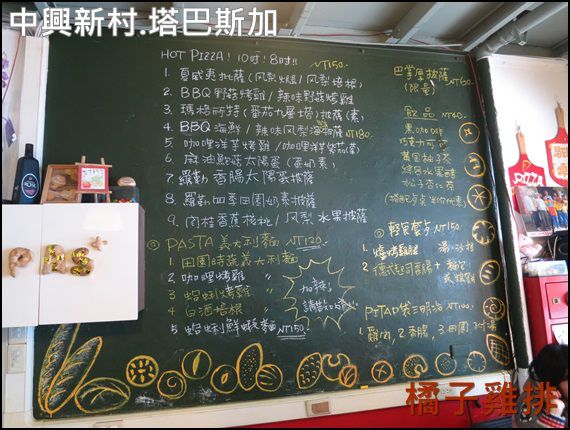 中興新村.塔巴斯加
HOT PIZZA! 10吋! 8吋!! NT150.
1. 夏威夷批薩(風梨燻雞/風梨培根)
2. BBQ野菇烤雞/辣味野菇烤雞
3. 瑪格所特(番茄九層塔)披薩(素)
4. BBQ海鮮/辣味風梨海鮮披薩 NT180.
5. 咖哩洋芋烤雞/咖哩洋芋
6. 麻油鮮菇太陽蛋(蛋奶素)
7. 羅勒香腸太陽蛋披薩
8. 羅勒四季田園奶素披薩
9. 肉桂香蕉核桃/風梨水果披薩
PASTA 義大利麵 NT120.
1. 田園時蔬義大利麵
2. 咖哩烤雞 〃
3. 蛤蜊烤雞 〃
4. 白酒培根
5. 蛤蜊鮮蝦麵 NT150.
加辣!
巴掌厚披薩 NT60.
(限量)
飲品 NT40.
黑咖啡
巧克力可可
黃金柚子茶
綜合水果醋
松子杏仁茶
輕食套餐 NT150.
1. 燻烤雞腿
2. 德式起司香腸+
PITA口袋三明治
1. 雞肉, 2. 香腸, 3. 田園
PIZZA
橘子雞排